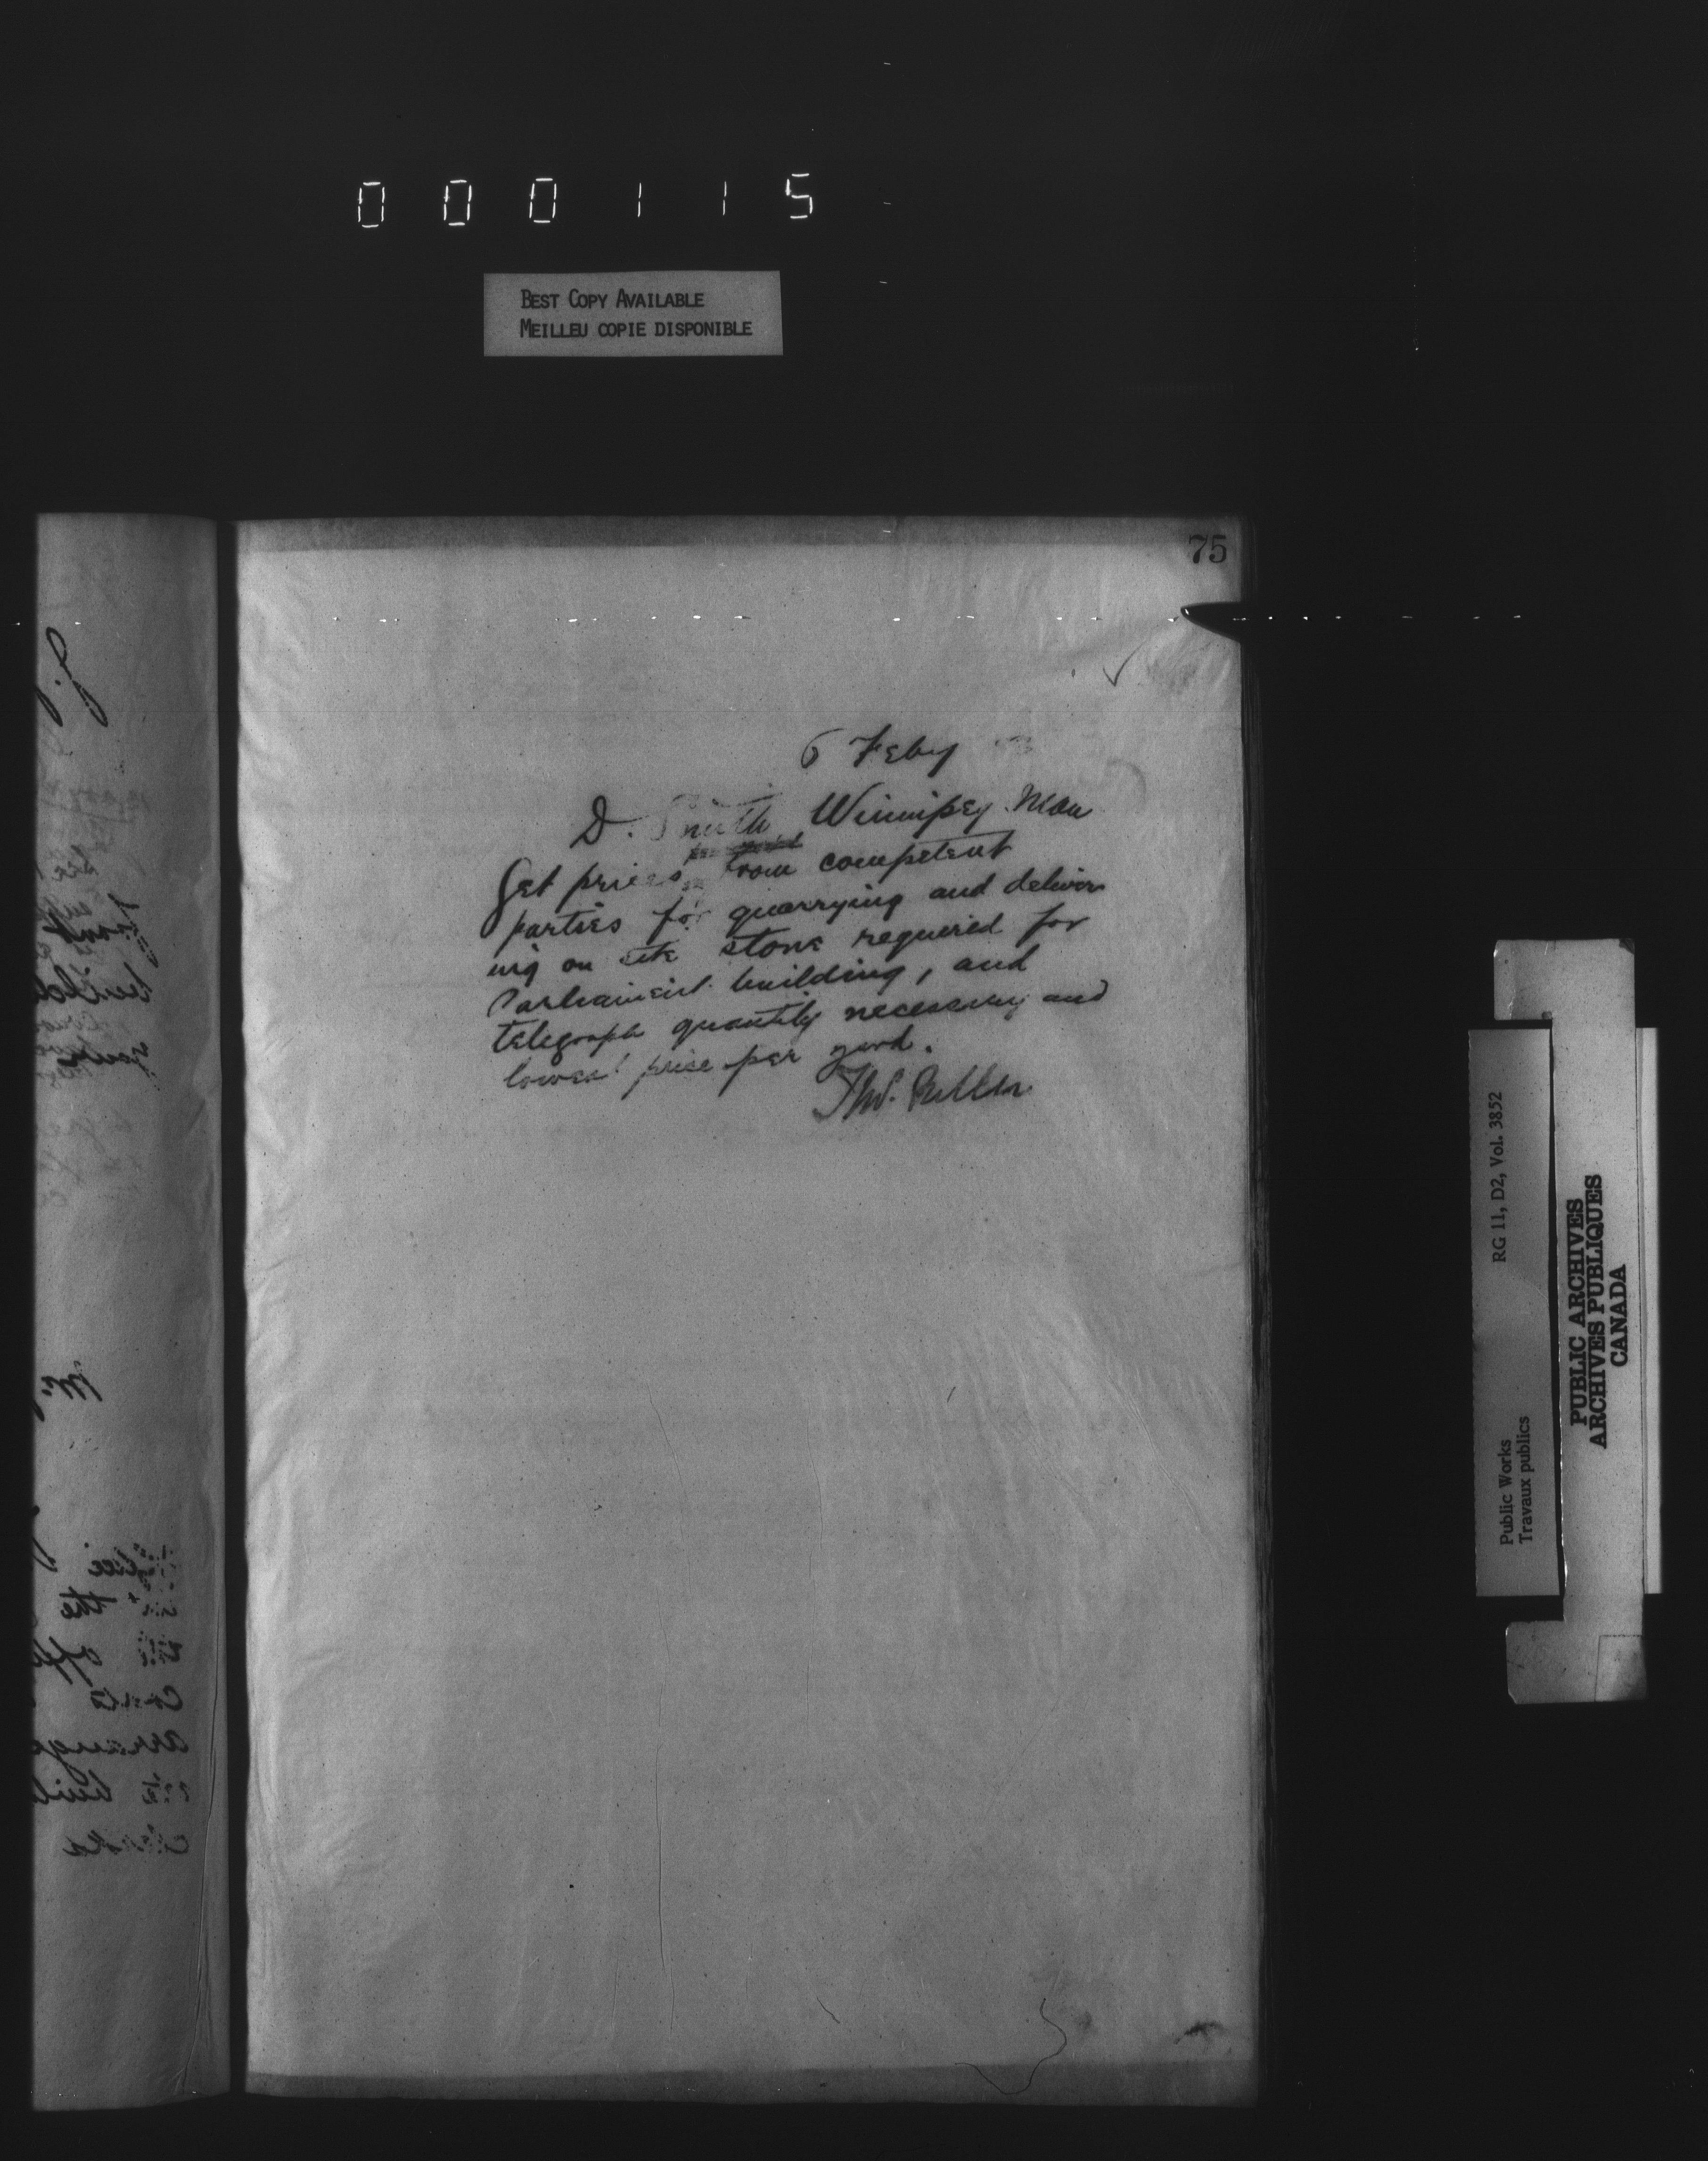 000115
BEST COPY AVAILABLE
MEILLEU COPIE DISPONIBLE
75
6 Feby
D. Smith, Winnipeg Man
Get prices from competent
parties for quarrying and deliver
ing on site stone required for
Parliament building, and
telegraph quantity necessary and
lowest price per yard.
Thos. Fuller
RG 11, D2, Vol. 3852
Public Works
Travaux publics
PUBLIC ARCHIVES
ARCHIVES PUBLIQUES
CANADA